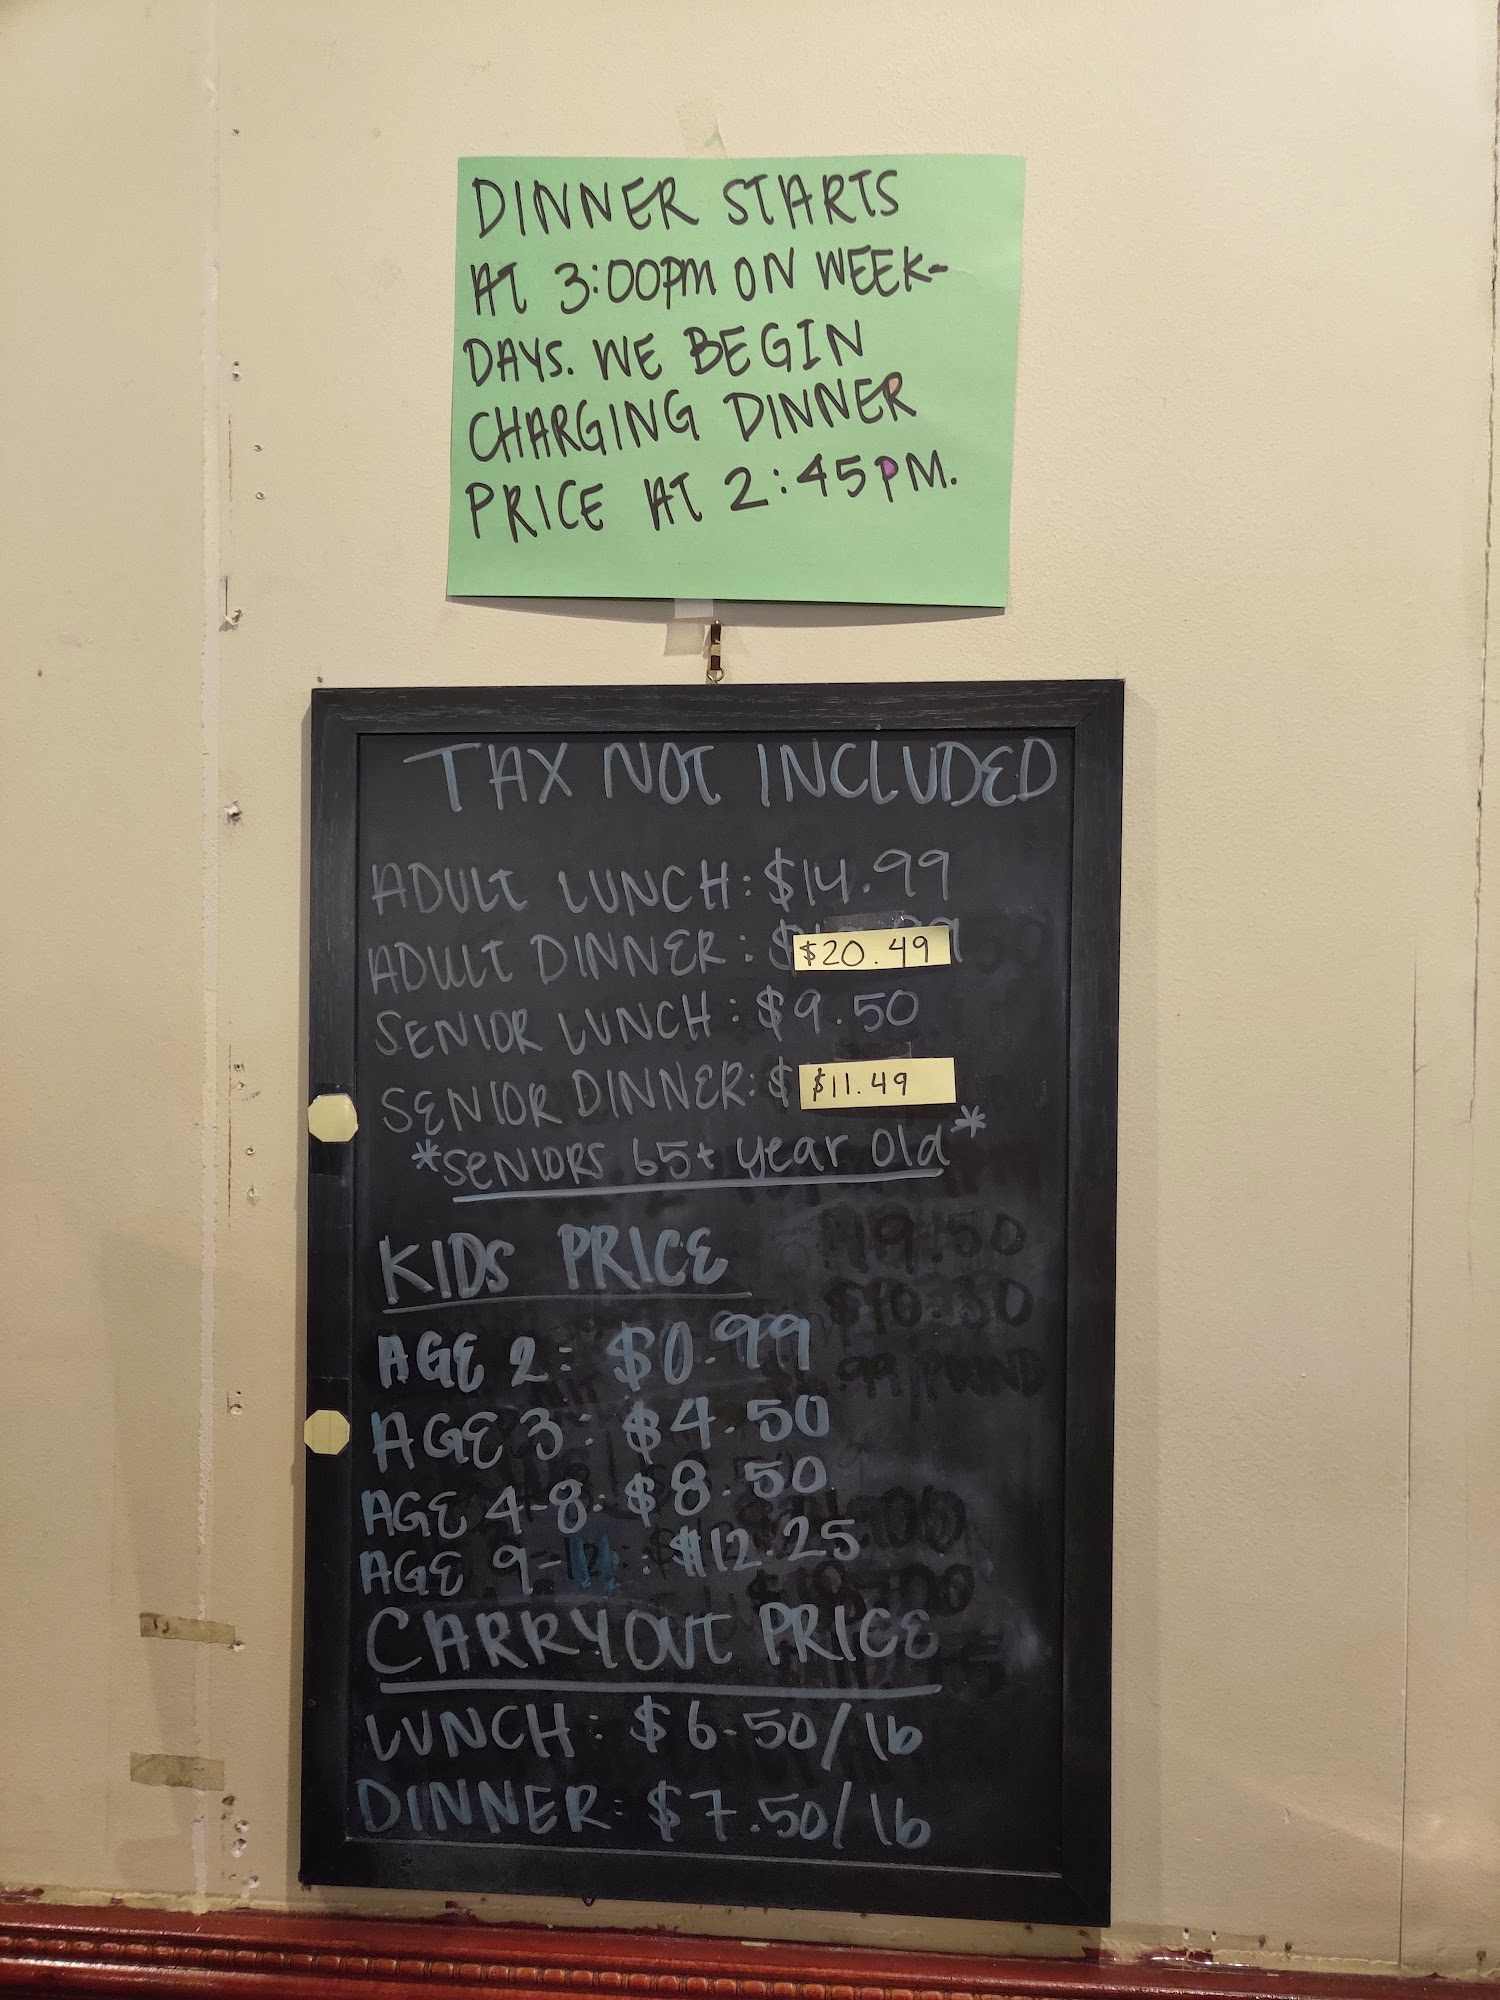 DINNER STARTS
AT 3:00PM ON WEEK-
DAYS. WE BEGIN
CHARGING DINNER
PRICE AT 2:45PM.
TAX NOT INCLUDED
ADULT LUNCH: $14.99
ADULT DINNER: $20.49
SENIOR LUNCH: $9.50
SENIOR DINNER: $ $11.49
*SENIORS 65+ year old*
KIDS PRICE
AGE 2: $0.99
AGE 3: $4.50
AGE 4-8: $8.50
AGE 9-11: $12.25
CARRYOUT PRICE
LUNCH: $6.50/lb
DINNER: $7.50/lb